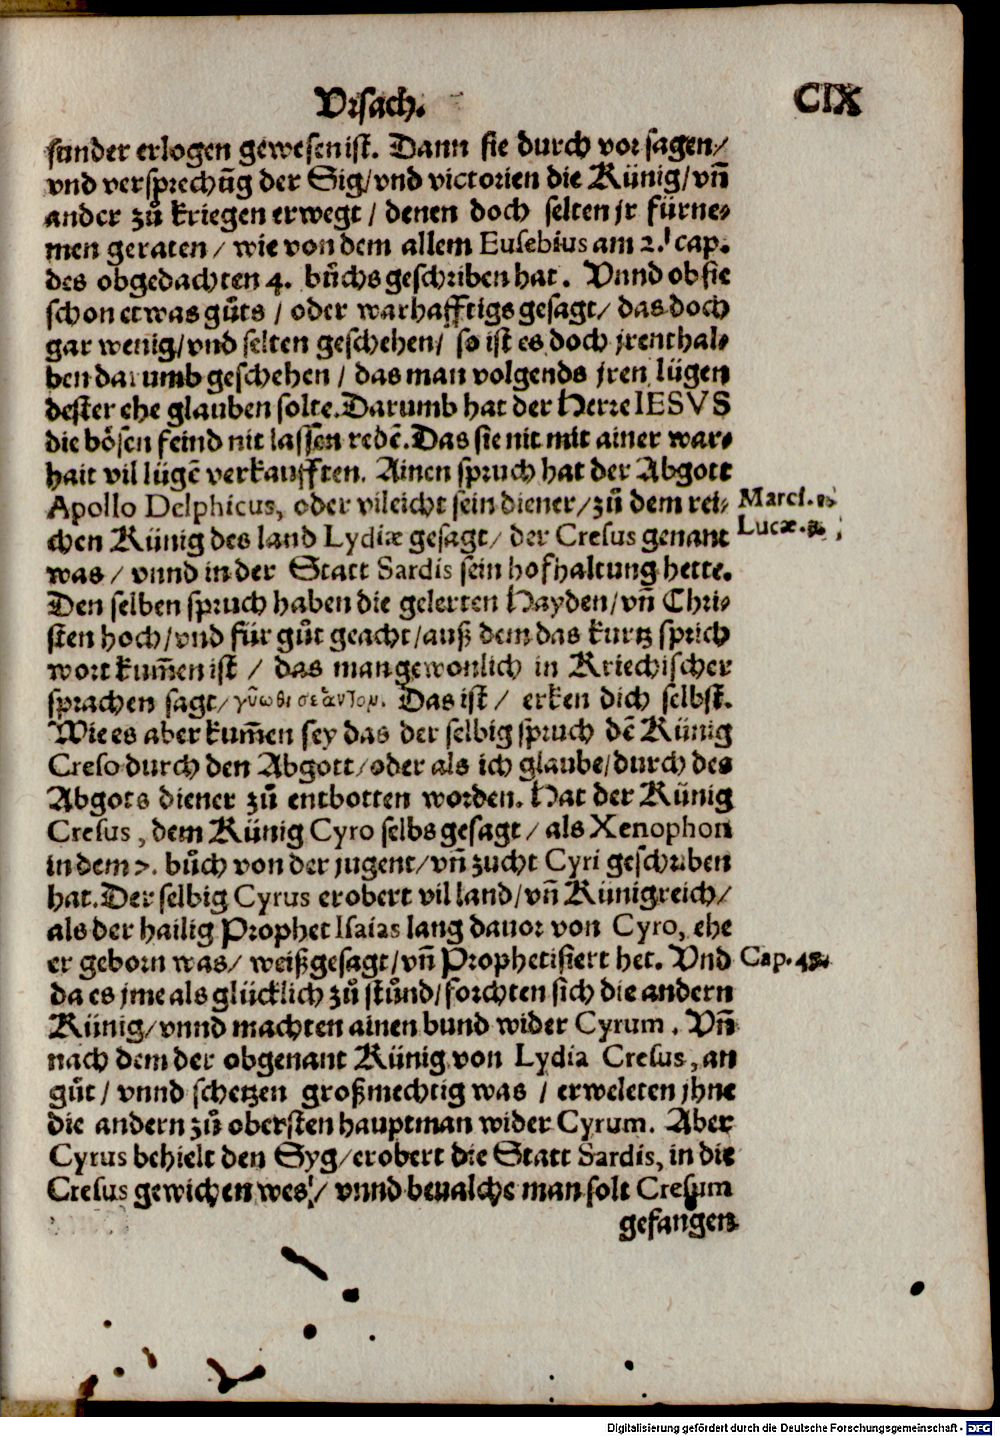 Vrsach. CIX
sunder erlogen gewesen ist. Dann sie durch vor sagen/
vnd versprechũg der Sig/vnd victorien die Künig/vñ
ander zů kriegen erwegt / denen doch selten jr fürne-
men geraten / wie von dem allem Eusebius am 2. cap.
des obgedachten 4. bůchs geschriben hat. Vnnd ob sie
schon etwas gůts / oder warhafftigs gesagt / das doch
gar wenig/vnd selten geschehen/ so ist es doch jrenthal-
ben darumb geschehen / das man volgends jren lügen
dester ehe glauben solte. Darumb hat der Herre IESVS
die bösen feind nit lassen redẽ. Das sie nit mit ainer war-
hait vil lügẽ verkaufften. Ainen spruch hat der Abgott
Apollo Delphicus, oder vileicht sein diener/zů dem rei- Marci. 1.
chen Künig des land Lydiæ gesagt/ der Cresus genant Lucæ. 4.
was / vnnd in der Statt Sardis sein hofhaltung hette.
Den selben spruch haben die gelerten Hayden/vñ Chri-
sten hoch/vnd für gůt geacht/auß dem das kurtz sprich
wort kum̃en ist / das man gewonlich in Kriechischer
sprachen sagt/ γνῶθι σεἀυτον. Das ist / erken dich selbst.
Wie es aber kum̃en sey das der selbig spruch dẽ Künig
Creso durch den Abgott/oder als ich glaube/durch des
Abgots diener zů entbotten worden. Hat der Künig
Cresus, dem Künig Cyro selbs gesagt / als Xenophon
in dem 7. bůch von der jugent/vñ zucht Cyri geschriben
hat. Der selbig Cyrus erobert vil land/vñ Künigreich/
als der hailig Prophet Isaias lang dauor von Cyro, ehe
er geborn was/ weißgesagt/vñ Prophetisiert het. Vnd Cap. 45.
da es jme als glücklich zů stůnd/forchten sich die andern
Künig/vnnd machten ainen bund wider Cyrum. Vñ
nach dem der obgenant Künig von Lydia Cresus, an
gůt / vnnd schetzen großmechtig was / erweleten jhne
die andern zů obersten hauptman wider Cyrum. Aber
Cyrus behielt den Syg/erobert die Statt Sardis, in die
Cresus gewichen wes / vnnd beualche man solt Cresum
gefangen
Digitalisierung gefördert durch die Deutsche Forschungsgemeinschaft - DFG